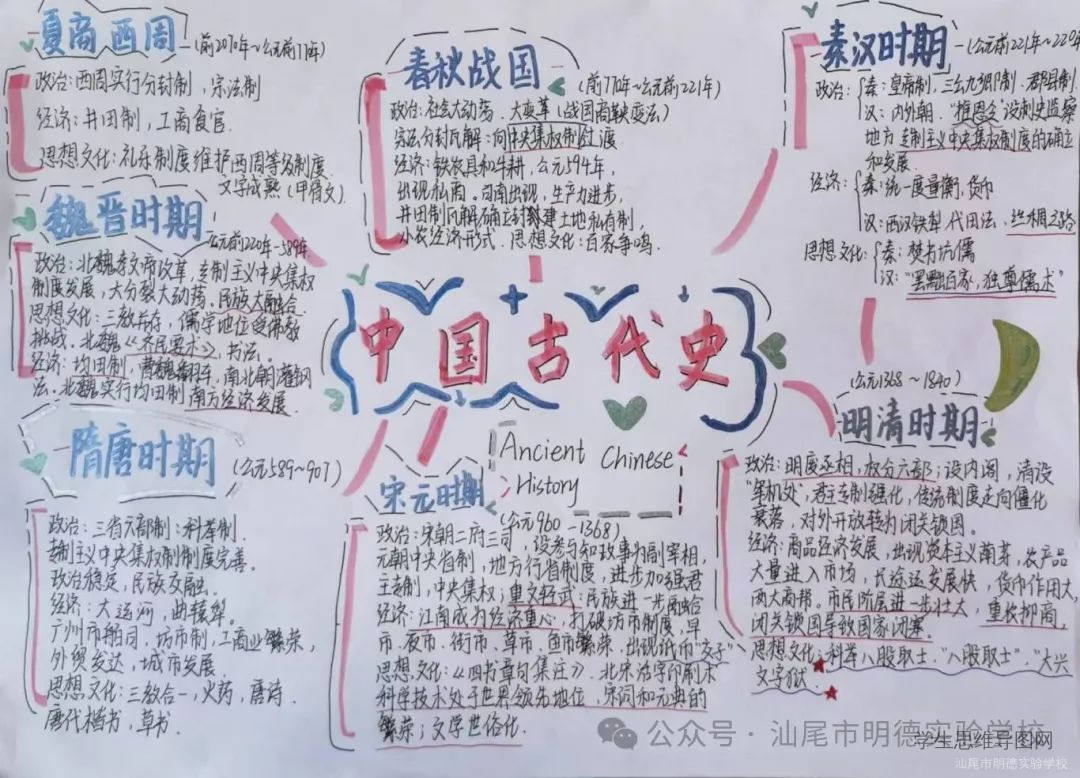 夏商西周
(前2070年~公元前771年)
政治:西周实行分封制,宗法制
经济:井田制,工商食官.
思想文化:礼乐制度维护西周等级制度.
文字成熟(甲骨文).
春秋战国
(前770年~公元前221年)
政治:社会大动荡.大变革(战国商鞅变法)
宗法分封瓦解:向中央集权制过渡
经济:铁农具和牛耕,公元594年,
出现私商.司南出现,生产力进步,
井田制瓦解确立封建土地私有制,
小农经济形式.思想文化:百家争鸣.
秦汉时期
(公元前221年~220年
政治:
秦:皇帝制,三公九卿制.郡县制.
汉:内外朝,"推恩令"设刺史监察
地方专制主义中央集权制度的确立
和发展
经济:
秦:统一度量衡,货币
汉:西汉铁犁代田法,丝绸之路
思想文化:
秦:焚书坑儒
汉:"罢黜百家,独尊儒术"
魏晋时期
公元前220年-589年
政治:北魏孝文帝改革,专制主义中央集权
制度发展,大分裂大动荡.民族大融合.
思想文化:三教并存,儒学地位受佛教
挑战.北魏《齐民要术》,书法.
经济:均田制,曹魏翻车,南北朝灌钢
法.北魏实行均田制南方经济发展.
中国古代史
Ancient Chinese
History
隋唐时期
(公元589~907)
政治:三省六部制:科举制.
专制主义中央集权制制度完善.
政治稳定,民族交融.
经济:大运河,曲辕犁.
广州市舶司,坊市制,工商业繁荣,
外贸发达,城市发展
思想文化:三教合一,火药,唐诗.
唐代楷书,草书.
宋元时期
(公元960-1368)
政治:宋朝二府三司,设参与知政事为副宰相,
元朝中央省制,地方行省制度,进步加强君
主专制,中央集权;重文轻武:民族进一步融合
经济:江南成为经济重心,打破坊市制度,早
市、夜市、街市、草市、鱼市繁荣.出现纸币"交子"
思想文化:《四书章句集注》.北宋活字印刷术
科学技术处于世界领先地位,宋词和元典的
繁荣;文学世俗化.
(公元1368~1840)
明清时期
政治:明废丞相,权分六部;设内阁,清设
"军机处",君主专制强化,传统制度走向僵化
衰落,对外开放转为闭关锁国.
经济:商品经济发展,出现资本主义萌芽,农产品
大量进入市场,长途运发展快,货币作用大,
两大商帮。市民阶层进一步壮大,重农抑商,
闭关锁国导致国家闭塞.
思想文化:科举八股取士,"八股取士".“大兴
文字狱.
公众号·汕尾市明德实验学校
学生思维导图网
汕尾市明德实验学校